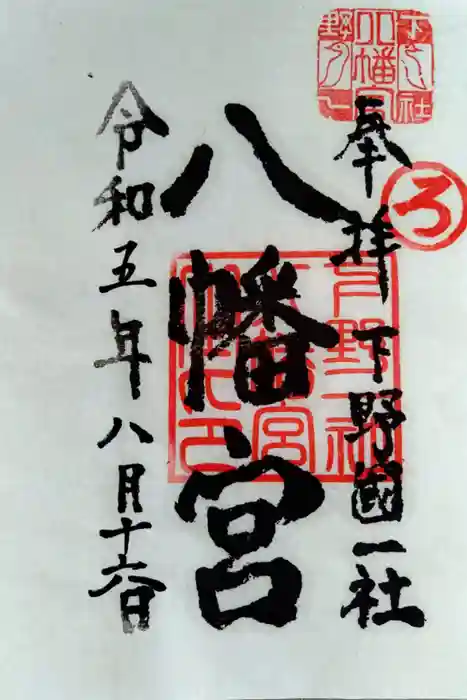 奉拝 下野國一社
ろ
八幡宮
令和五年八月十六日